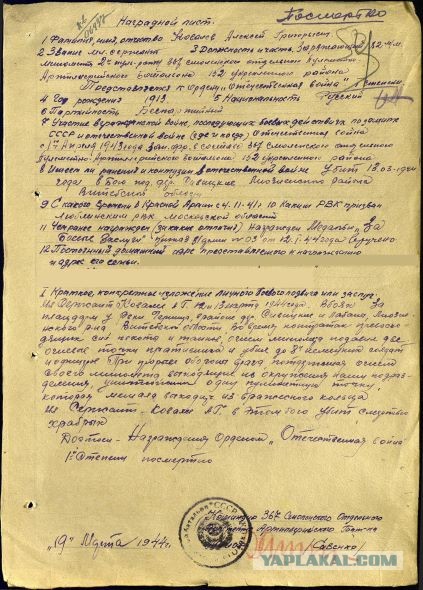 Посмертно
Наградной лист.
1 Фамилия, имя, отчество Косолов Алексей Григорьевич
2 Звание мл. сержант 3 Должность и часть. Заряжающий 82 м.м.
миномёта 2й стрел. роты 367 Смоленского отдельного Пулемётно
Артиллерийского Батальона 152 укрепленного района
Представляется к Ордену „Отечественная война" I степени
4 Год рождения 1913 5 Национальность Русский
6 Партийность Беспартийный
7 Участие в гражданской войне, последующих боевых действиях по защите
СССР и отечественной войне (где и когда) Отечественная война
с 1го Апреля 1943 года Зап. фр. в составе 367 Смоленского отдельного
Пулемётно-Артиллерийского батальона 152 укрепленного района
8 Имеет ли ранения и контузии в отечественной войне Убит 13.03-44
года в бою под дер. Савицкие Лиозненского района
Витебской области
9 С какого времени в Красной Армии с 4.11-41г 10 Каким РВК призван
Люблинским РВК Московской области
11 Чем ранее награжден (за какие отличия) Награжден Медалью „За
Боевые Заслуги" 03 от 12.1.44 года Вручено
12 Постоянный домашний адрес представляемого к награждению
и адрес его семьи.
I Краткое, конкретное изложение личного боевого подвига или заслуг.
Мл. Сержант 13 марта 1944 года. В боях за
плацдарм у реки в районе дер Савицкие и Лиозненского
р-на Витебской области Во время контратак превосходящих
сил пехоты и танков, огнем миномета подавил две
огневые точки противника и убил до 8ми немецких солдат
и офицеров При прорыве обоза врага поддерживал огнем
своего миномета выходящие из окружения наши подразделения,
уничтожил одну пулеметную точку,
которая мешала выходу из вражеского кольца
Мл. Сержант А.Г. в этом бою убит смертью
храбрых
Достоин - Награждения Орденом „Отечественная война
1й Степени посмертно
Командир 367 Смоленского Отдельного
Пулеметно Артиллерийского Бат-на
/Савенко/
„19" Марта 1944г.
YAPLAKAL.COM